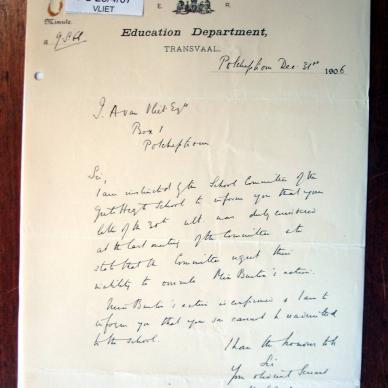 VLIET
E. R.
Minute.
Education Department,
TRANSVAAL.
Potchefstroom Dec. 31st 1906
J. A van Vliet Esqr
Box 1
Potchefstroom
Sir,
I am instructed by the School Committee of the
School to inform you that your
letter of the 20th ult. was duly considered
at the last meeting of the Committee &
state that the Committee regret their
inability to overrule Miss action.
Miss action is confirmed & I am to
inform you that your son cannot be readmitted
to the school.
I have the honour to be
Sir
Your obedient Servant